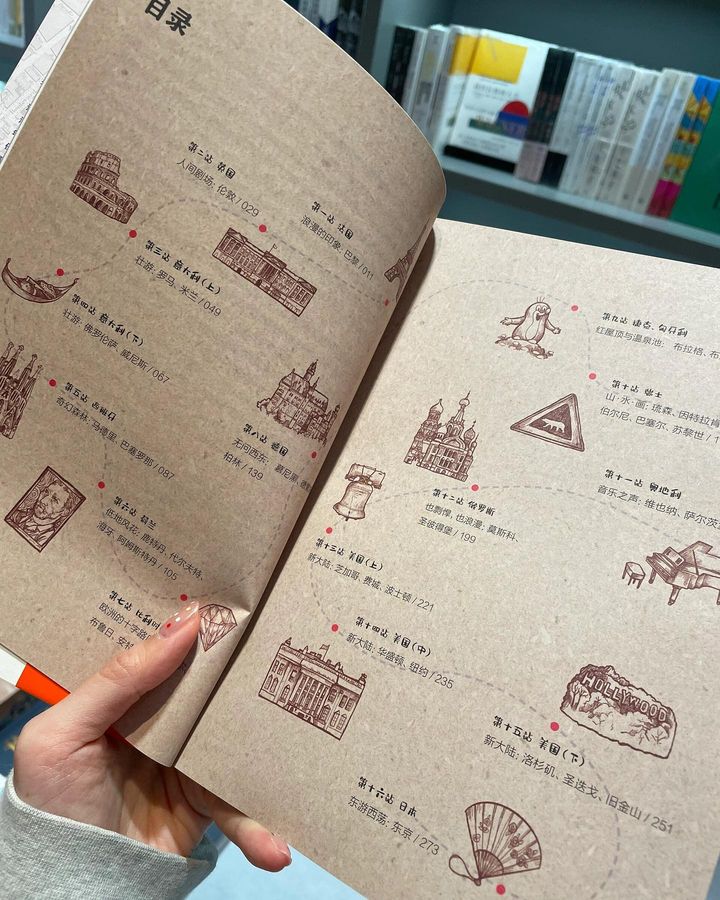 目录
第一站 法国
浪漫的印象: 巴黎 / 011
第二站 英国
人间剧场: 伦敦 / 029
第三站 意大利(上)
壮游: 罗马、米兰 / 049
第四站 意大利(下)
壮游: 佛罗伦萨、威尼斯 / 067
第五站 西班牙
奇幻森林: 马德里、巴塞罗那 / 087
第六站 荷兰
低地风花: 鹿特丹、代尔夫特、
海牙、阿姆斯特丹 / 105
第七站 比利时
欧洲的十字路
布鲁日、安特
第八站 德国
无问西东: 慕尼黑、德
柏林 / 139
第九站 捷克、匈牙利
红屋顶与温泉池: 布拉格、布
第十站 瑞士
山·水·画: 琉森、因特拉肯
伯尔尼、巴塞尔、苏黎世 / 1
第十一站 奥地利
音乐之声: 维也纳、萨尔茨
第十二站 俄罗斯
也剽悍, 也浪漫: 莫斯科、
圣彼得堡 / 199
第十三站 美国(上)
新大陆: 芝加哥、费城、波士顿 / 221
第十四站 美国(中)
新大陆: 华盛顿、纽约 / 235
HOLLYWOOD
第十五站 美国(下)
新大陆: 洛杉矶、圣迭戈、旧金山 / 251
第十六站 日本
东游西荡: 东京 / 273